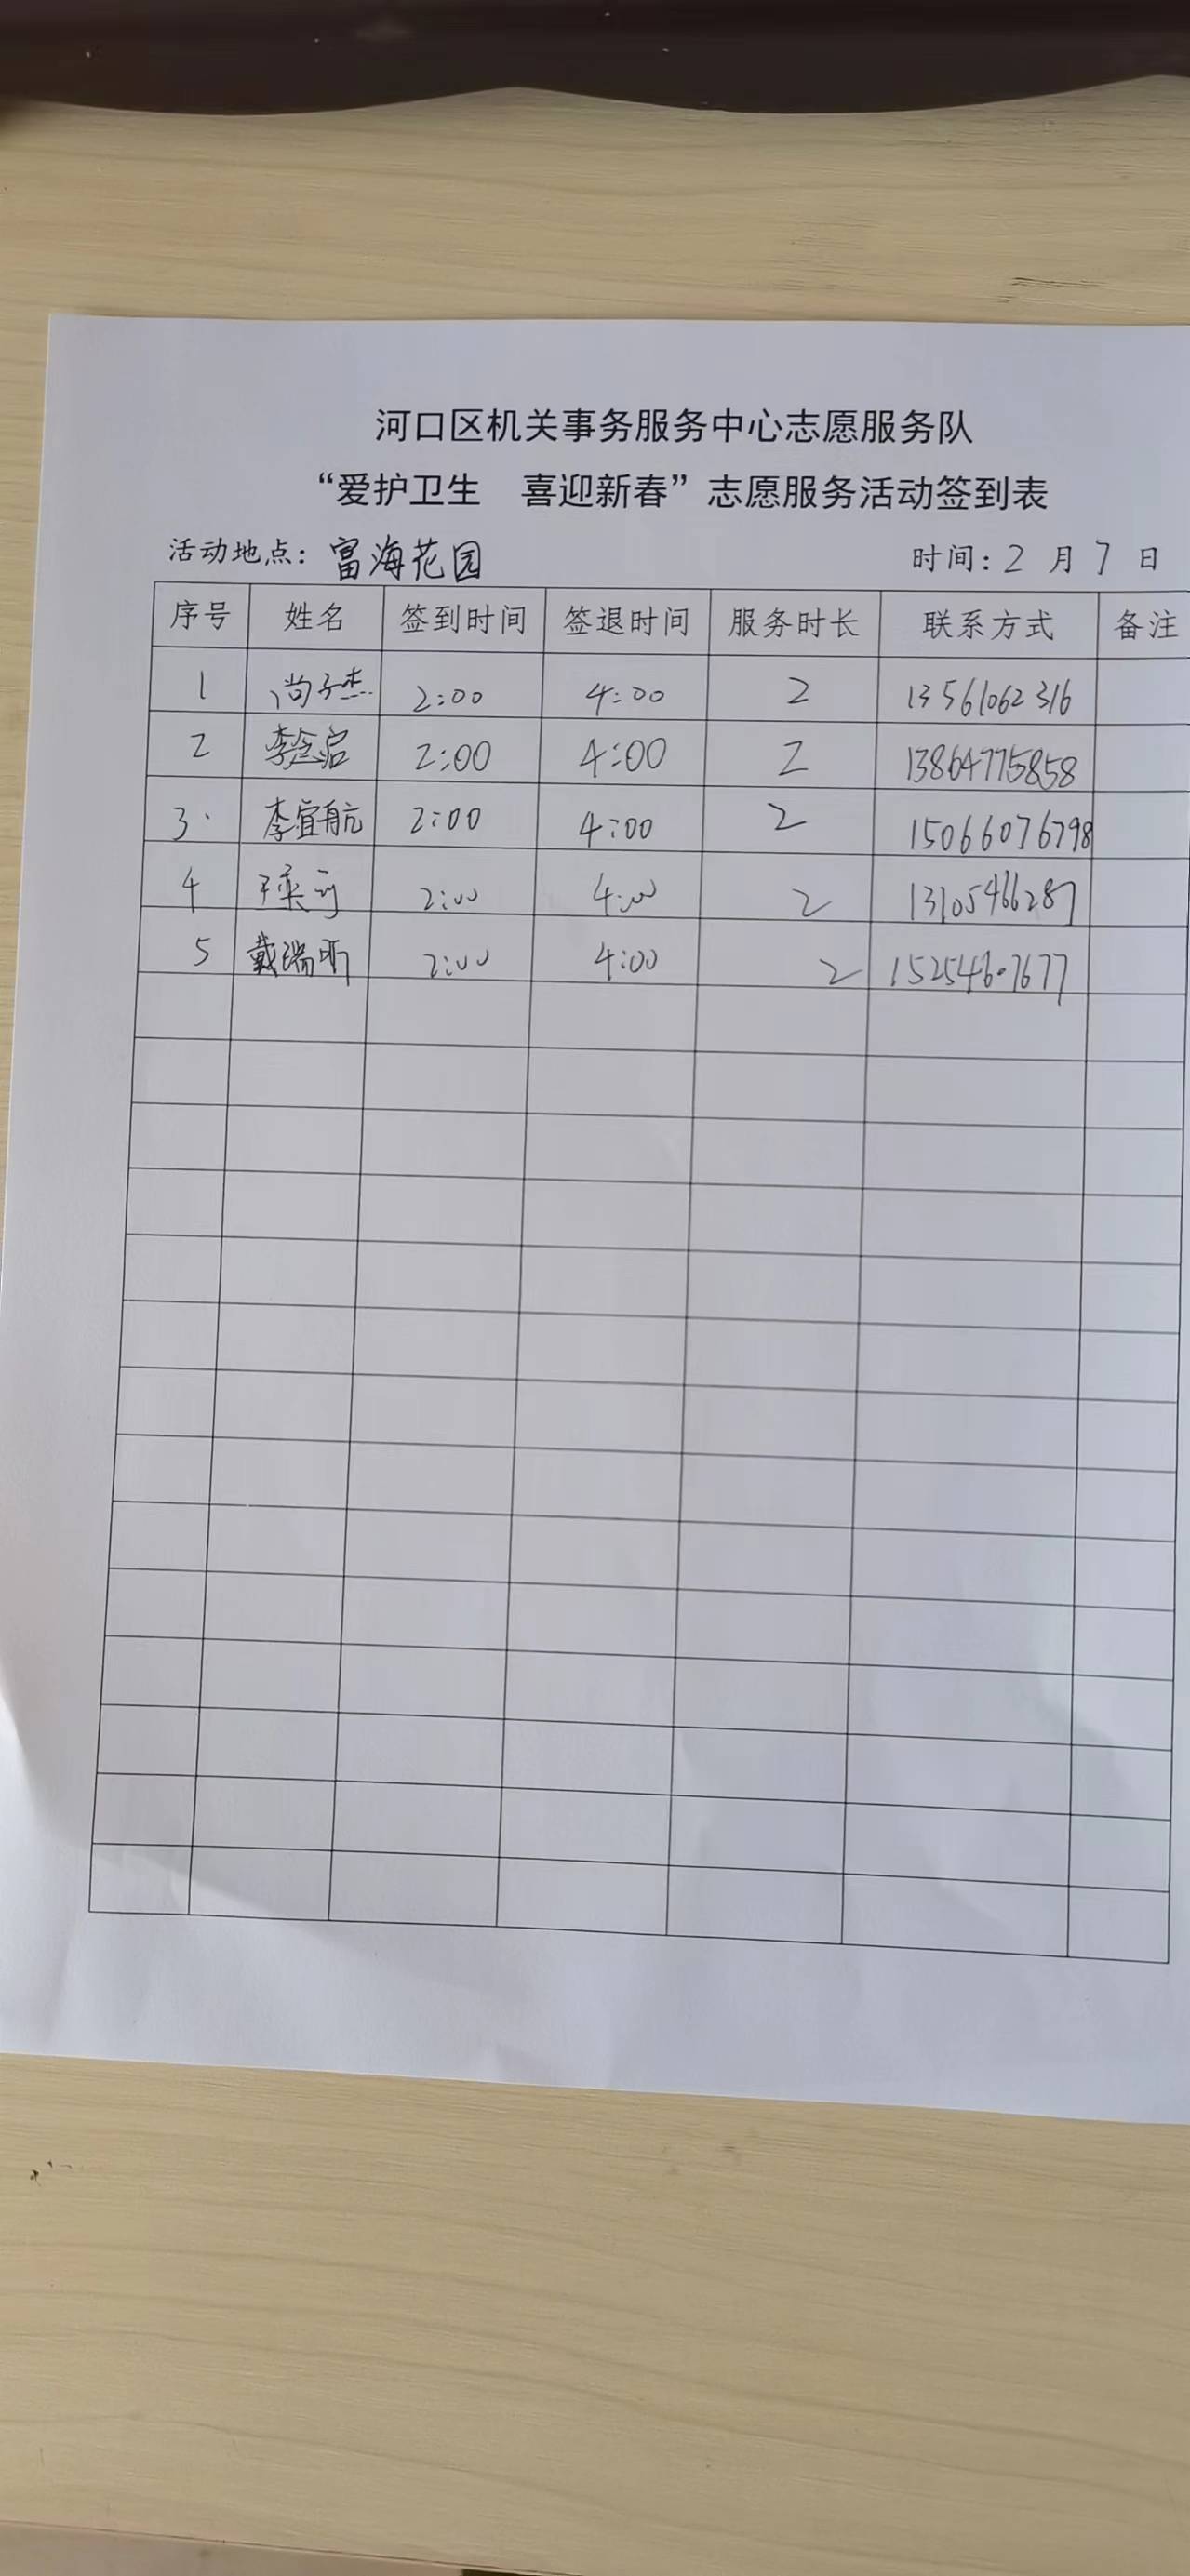 河口区机关事务服务中心志愿服务队
“爱护卫生 喜迎新春”志愿服务活动签到表
活动地点：富海花园 时间：2 月 7 日
序号 姓名 签到时间 签退时间 服务时长 联系方式 备注
1 尚子杰 2:00 4:00 2 13561062316
2 李金启 2:00 4:00 2 13864775858
3. 李宜航 2:00 4:00 2 15066076798
4 2:00 4:00 2 13105466287
5 戴瑞昕 2:00 4:00 2 15254607677